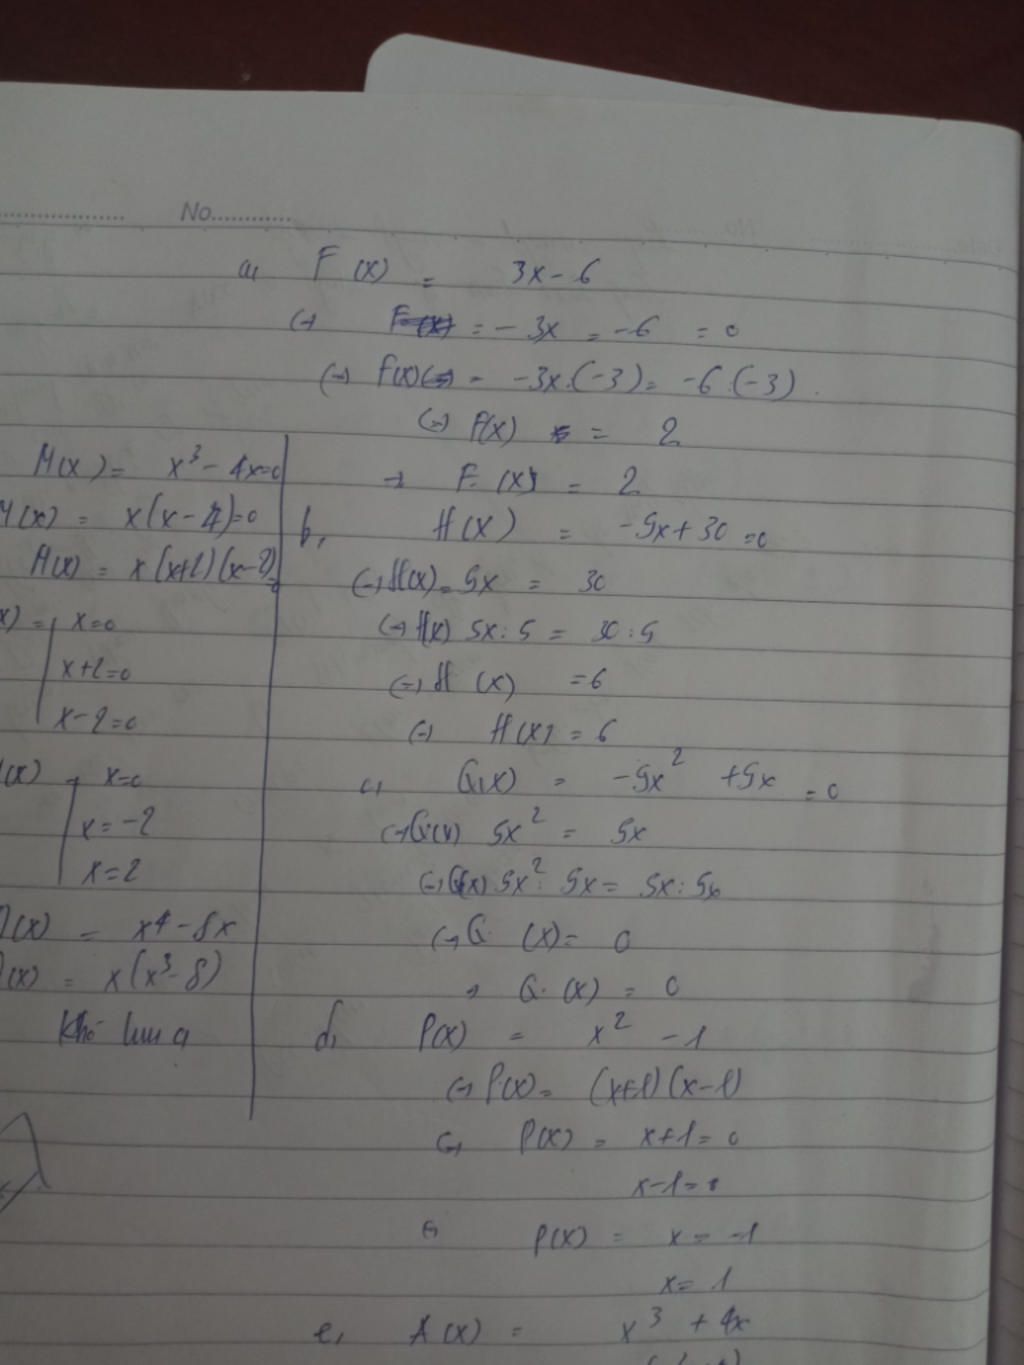 No............
a, F(x) = 3x - 6
(-) F(x) = - 3x = -6 = 0
(-) F(x) (-) = -3x.(-3) = -6.(-3).
(-) F(x) = 2
→ F(x) = 2
b, H(x) = -5x + 30 = 0
(-) H(x) = 5x = 30
(-) H(x) 5x : 5 = 30 : 5
(=) H (x) = 6
(-) H(x) = 6
c, Q(x) = -5x² + 5x = 0
(-) Q(x) 5x² = 5x
(-) Q(x) 5x² : 5x = 5x : 5x
(-) Q (x) = 0
→ Q.(x) = 0
d, P(x) = x² - 1
(-) P(x) = (x+1)(x-1)
(-) P(x) = x+1 = 0
x-1 = 0
P(x) = x = -1
x = 1
e, A(x) = x³ + 4x
M(x) = x³ - 4x = 0
M(x) = x(x - 4) = 0
M(x) = x(x+2)(x-2)
x) = x = 0
x+2 = 0
x-2 = 0
(x) x = 0
x = -2
x = 2
(x) = x⁴ - 8x
(x) = x(x³ - 8)
Khó lưu ạ